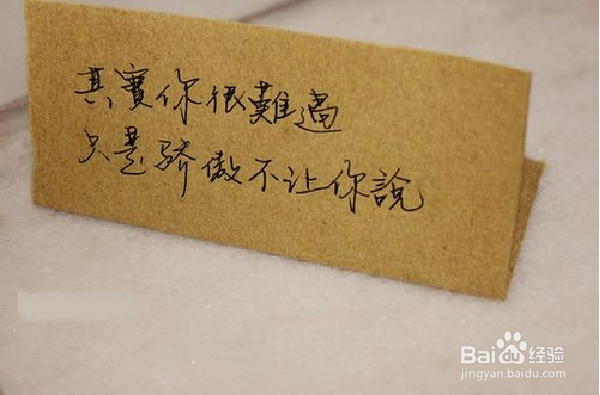 其實你很難過
只是骄傲不让你說
Bai du 经验
jingyan.baidu.com